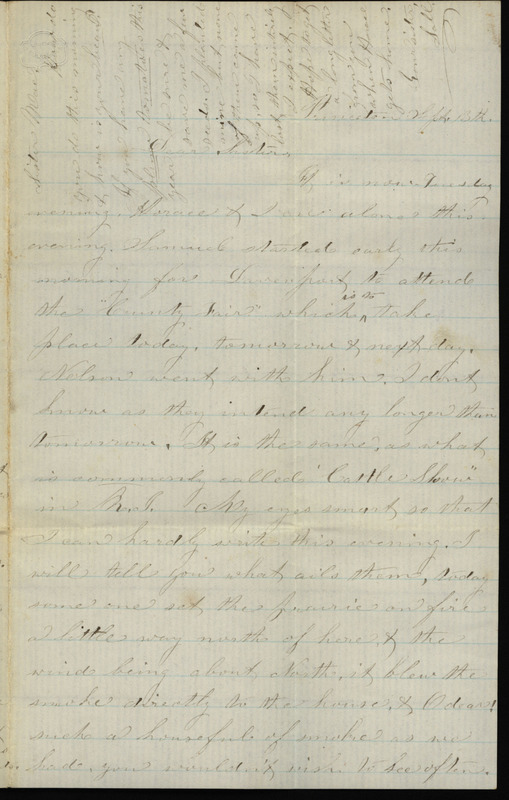 Princeton Sept 15th.
Dear Sisters,
It is now Tuesday
evening. Horace & I are alone this
evening. Samuel started early this
morning for Davenport to attend
the "County Fair" which is to take
place today, tomorrow & next day.
Nelson went with him. I dont
know as they intend any longer than
tomorrow. It is the same, as what
is commonly called "Cattle Show"
in R.I. My eyes smart so that
I can hardly write this evening. I
will tell you what ails them, today
some one set the prairie on fire
a little way north of here, & the
wind being about North, it blew the
smoke directly to the house, & O dear!
such a houseful of smoke as we
had, you wouldn't wish to see often.
Sister
How do
you do this morning
& how is your
If you have any
tomatoes this
year be sure &
save me a few